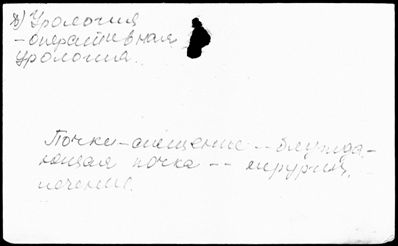 а) Урология
-оперативная
урология.
Почки-смещение -- блужда-
ющая почка -- хирургич.
лечение.